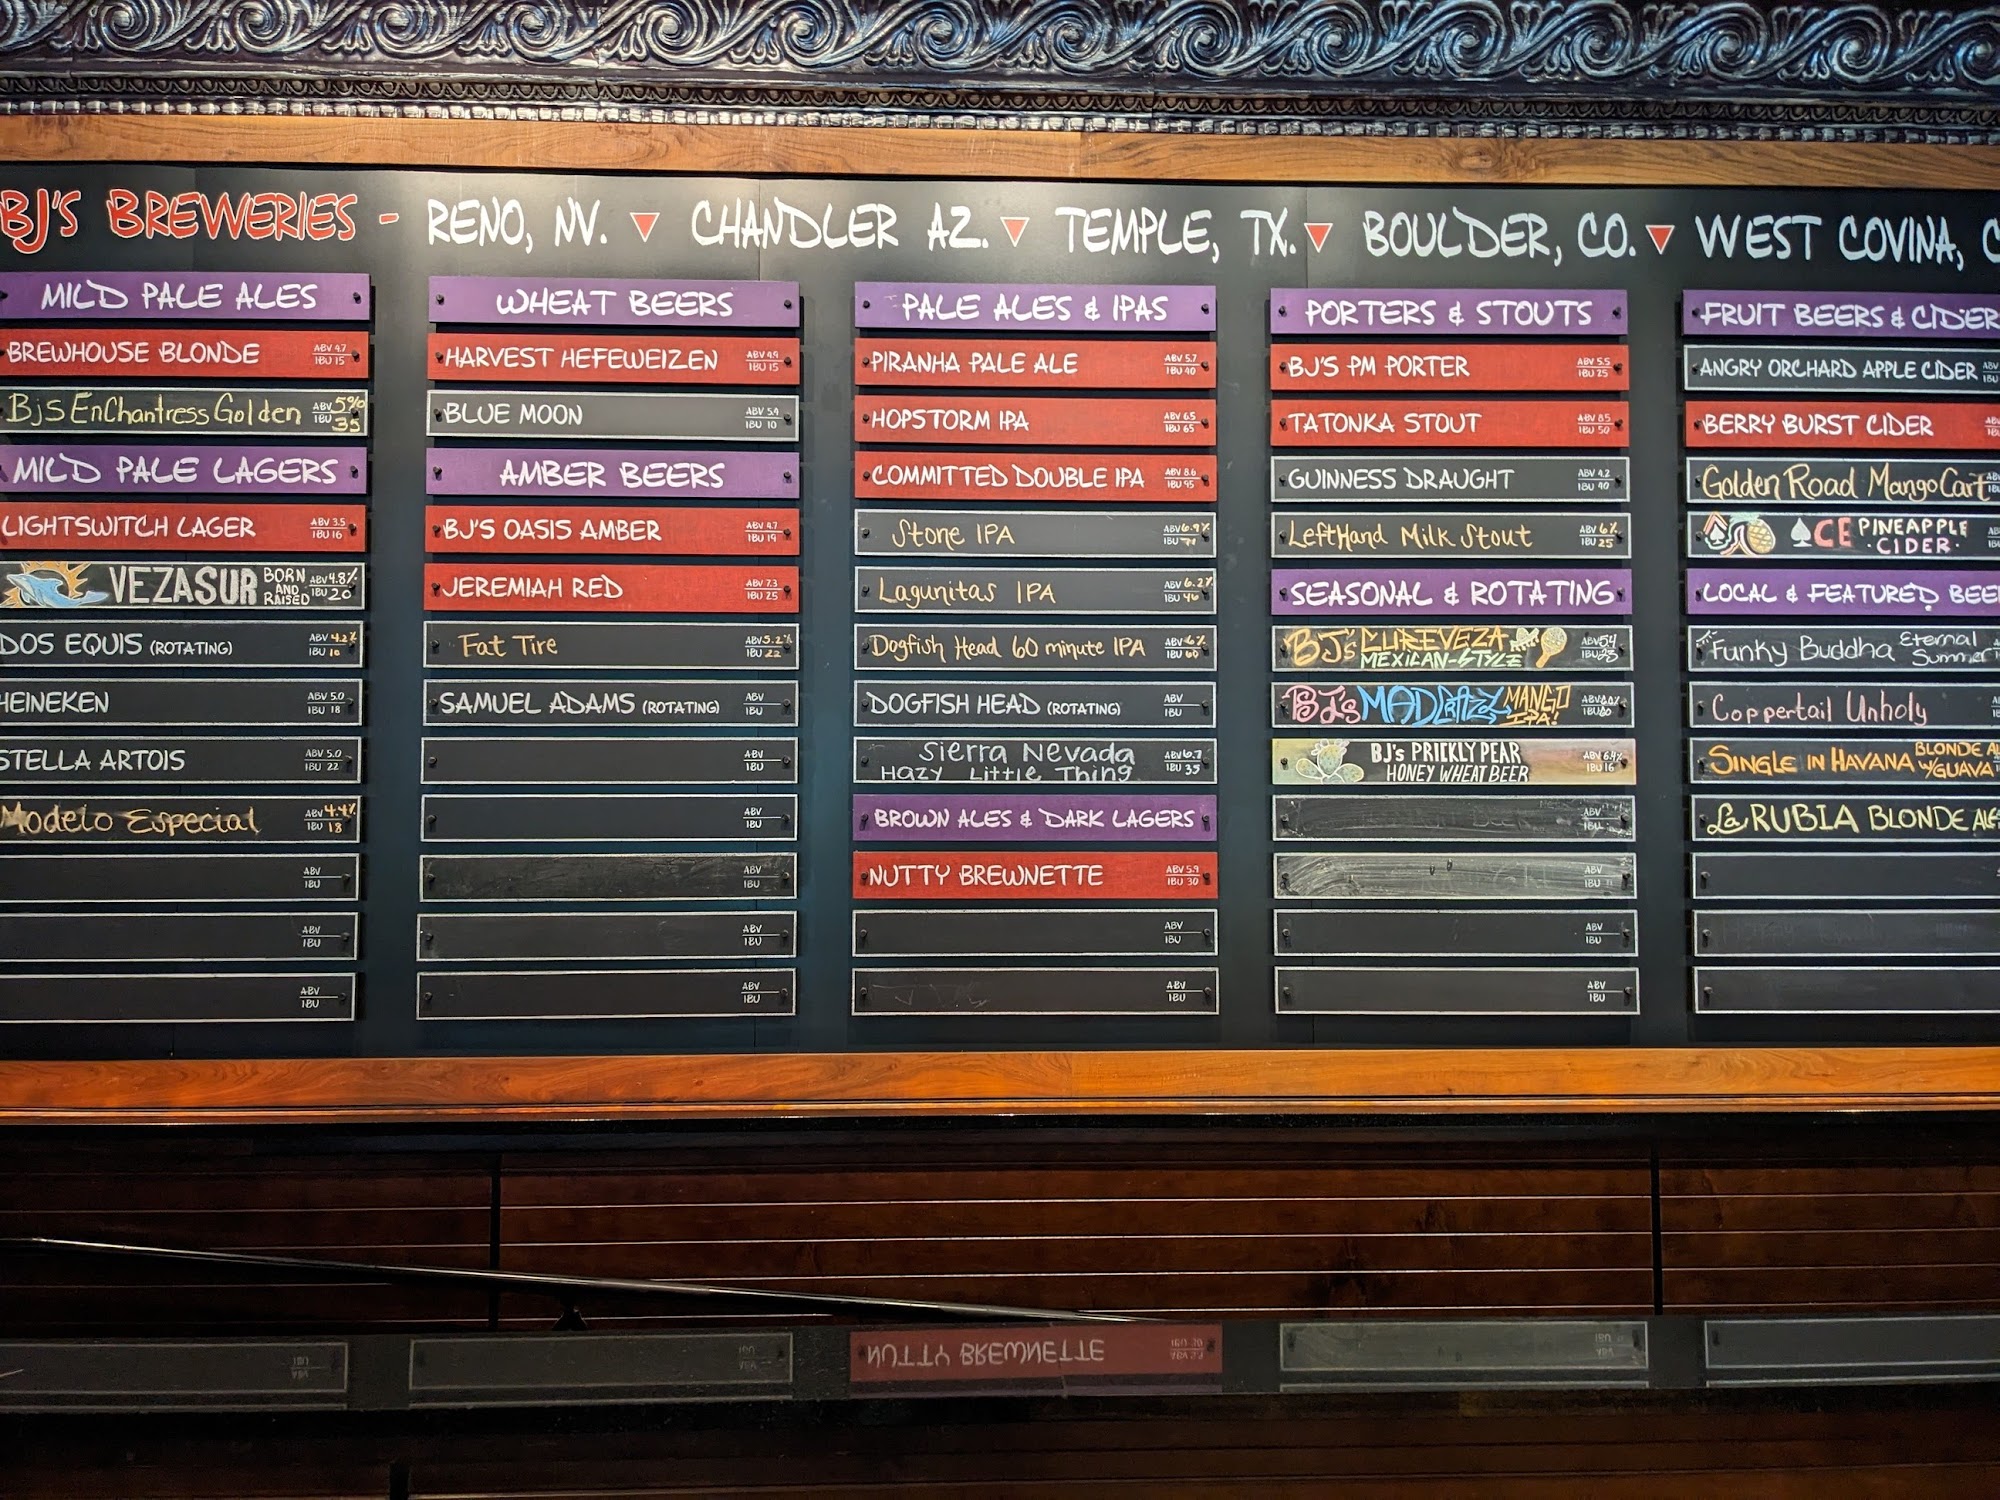 BJ'S BREWERIES - RENO, NV. ▼ CHANDLER AZ. ▼ TEMPLE, TX. ▼ BOULDER, CO. ▼ WEST COVINA, C
MILD PALE ALES
BREWHOUSE BLONDE ABV 4.7 IBU 15
BJs EnChantress Golden ABV 5% IBU 35
MILD PALE LAGERS
LIGHTSWITCH LAGER ABV 3.5 IBU 16
VEZASUR BORN AND RAISED ABV 4.8% IBU 20
DOS EQUIS (ROTATING) ABV 4.2% IBU 10
HEINEKEN ABV 5.0 IBU 18
STELLA ARTOIS ABV 5.0 IBU 22
Modelo Especial ABV 4.4% IBU 18
ABV IBU
ABV IBU
ABV IBU
WHEAT BEERS
HARVEST HEFEWEIZEN ABV 4.9 IBU 15
BLUE MOON ABV 5.4 IBU 10
AMBER BEERS
BJ'S OASIS AMBER ABV 4.7 IBU 19
JEREMIAH RED ABV 7.3 IBU 25
Fat Tire ABV 5.2% IBU 22
SAMUEL ADAMS (ROTATING) ABV IBU
ABV IBU
ABV IBU
ABV IBU
ABV IBU
ABV IBU
PALE ALES & IPAS
PIRANHA PALE ALE ABV 5.7 IBU 40
HOPSTORM IPA ABV 6.5 IBU 65
COMMITTED DOUBLE IPA ABV 8.6 IBU 95
Stone IPA ABV 6.9% IBU 71
Lagunitas IPA ABV 6.2% IBU 46
Dogfish Head 60 minute IPA ABV 6% IBU 60
DOGFISH HEAD (ROTATING) ABV IBU
Sierra Nevada ABV 6.7
Hazy Little Thing IBU 35
BROWN ALES & DARK LAGERS
NUTTY BREWNETTE ABV 5.9 IBU 30
ABV IBU
ABV IBU
PORTERS & STOUTS
BJ'S PM PORTER ABV 5.5 IBU 25
TATONKA STOUT ABV 8.5 IBU 50
GUINNESS DRAUGHT ABV 4.2 IBU 40
LeftHand Milk Stout ABV 6% IBU 25
SEASONAL & ROTATING
BJ's CUREVEZA ABV 5.4
MEXICAN-STYLE IBU 23
BJ's MAD CRAZY MANGO IPA! ABV IBU
BJ's PRICKLY PEAR ABV 6.4%
HONEY WHEAT BEER IBU 16
ABV IBU
ABV IBU
ABV IBU
ABV IBU
FRUIT BEERS & CIDER
ANGRY ORCHARD APPLE CIDER ABV IBU
BERRY BURST CIDER
Golden Road Mango Cart
ACE PINEAPPLE
CIDER
LOCAL & FEATURED BEE
Funky Buddha Eternal Summer
Coppertail Unholy
SINGLE IN HAVANA BLONDE AL W/GUAVA
La RUBIA BLONDE ALE
NUTTY BREWNETTE